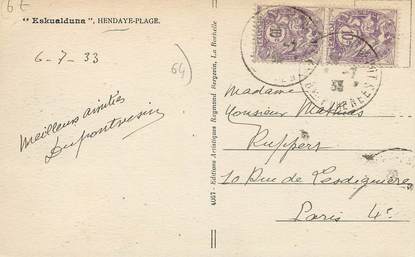 6€
" Eskualduna ", HENDAYE-PLAGE.
6-7-33
64
Meilleures amitiés
4067 - Editions Artistiques Raymond Bergevin, La Rochelle
10
10
33
Madame
Monsieur Mathias
Ruppert
10, Rue de Lesdiguières
Paris 4e